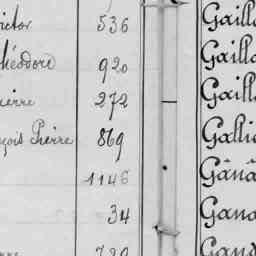 ictor 536 Gailla
Théodore 920 Gailla
ierre 272 Gailla
çois Pierre 869 Gallie
1146 Gânâ
34 Gana